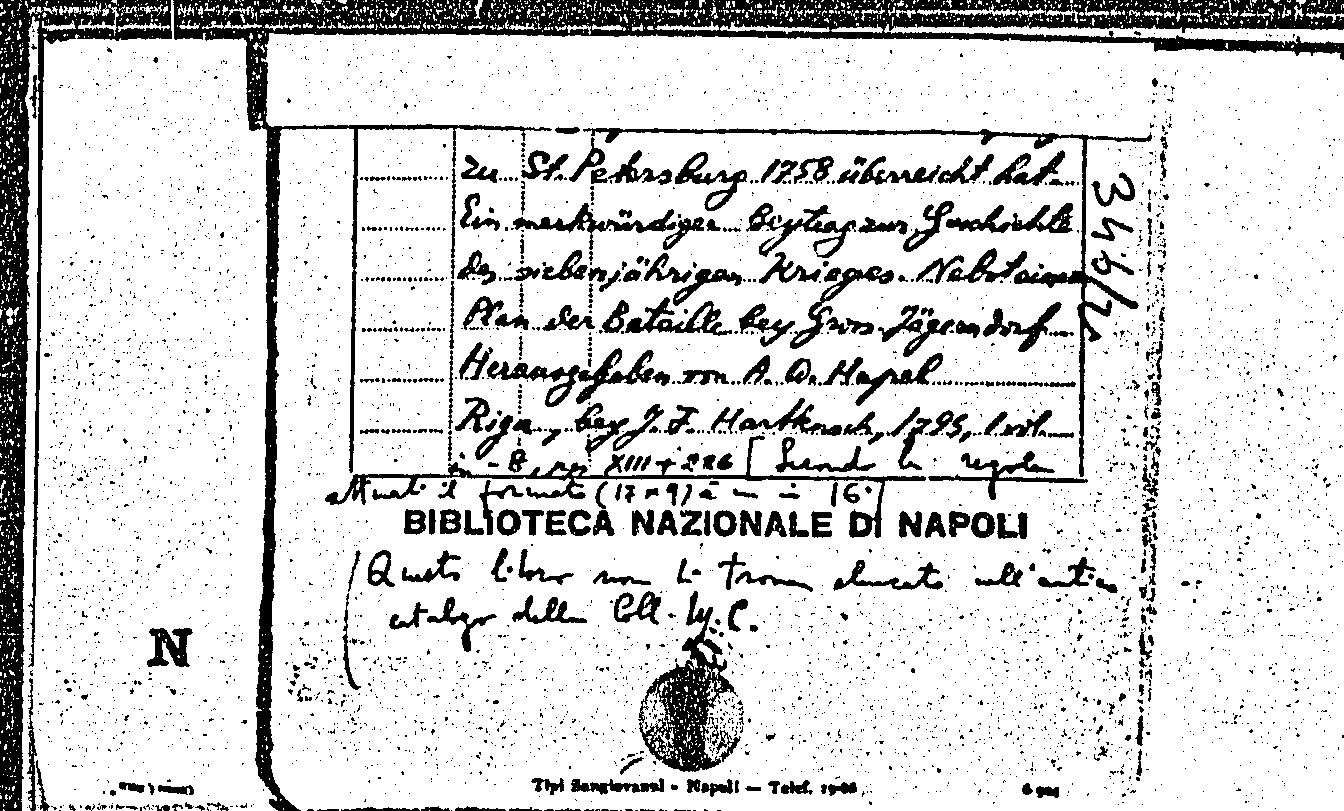 zu St. Petersburg 1758 überreicht hat.
Ein merkwürdiger Beytrag zur Geschichte
des siebenjährigen Krieges. Nebst einem
Plan der Bataille bey Gross-Jägerndorf
Herausgegeben von A. W. Hupel
Riga, bey J. F. Hartknoch, 1795, 1 vol.
in-8, pp. XIII + 226 [Secondo le regole
attuali il formato (17 x 9) è in 16°]
BIBLIOTECA NAZIONALE DI NAPOLI
(Questo libro non si trova elencato nell'antico
catalogo della Coll.
346/2
N
Tipi Sangiovanni - Napoli — Telef.